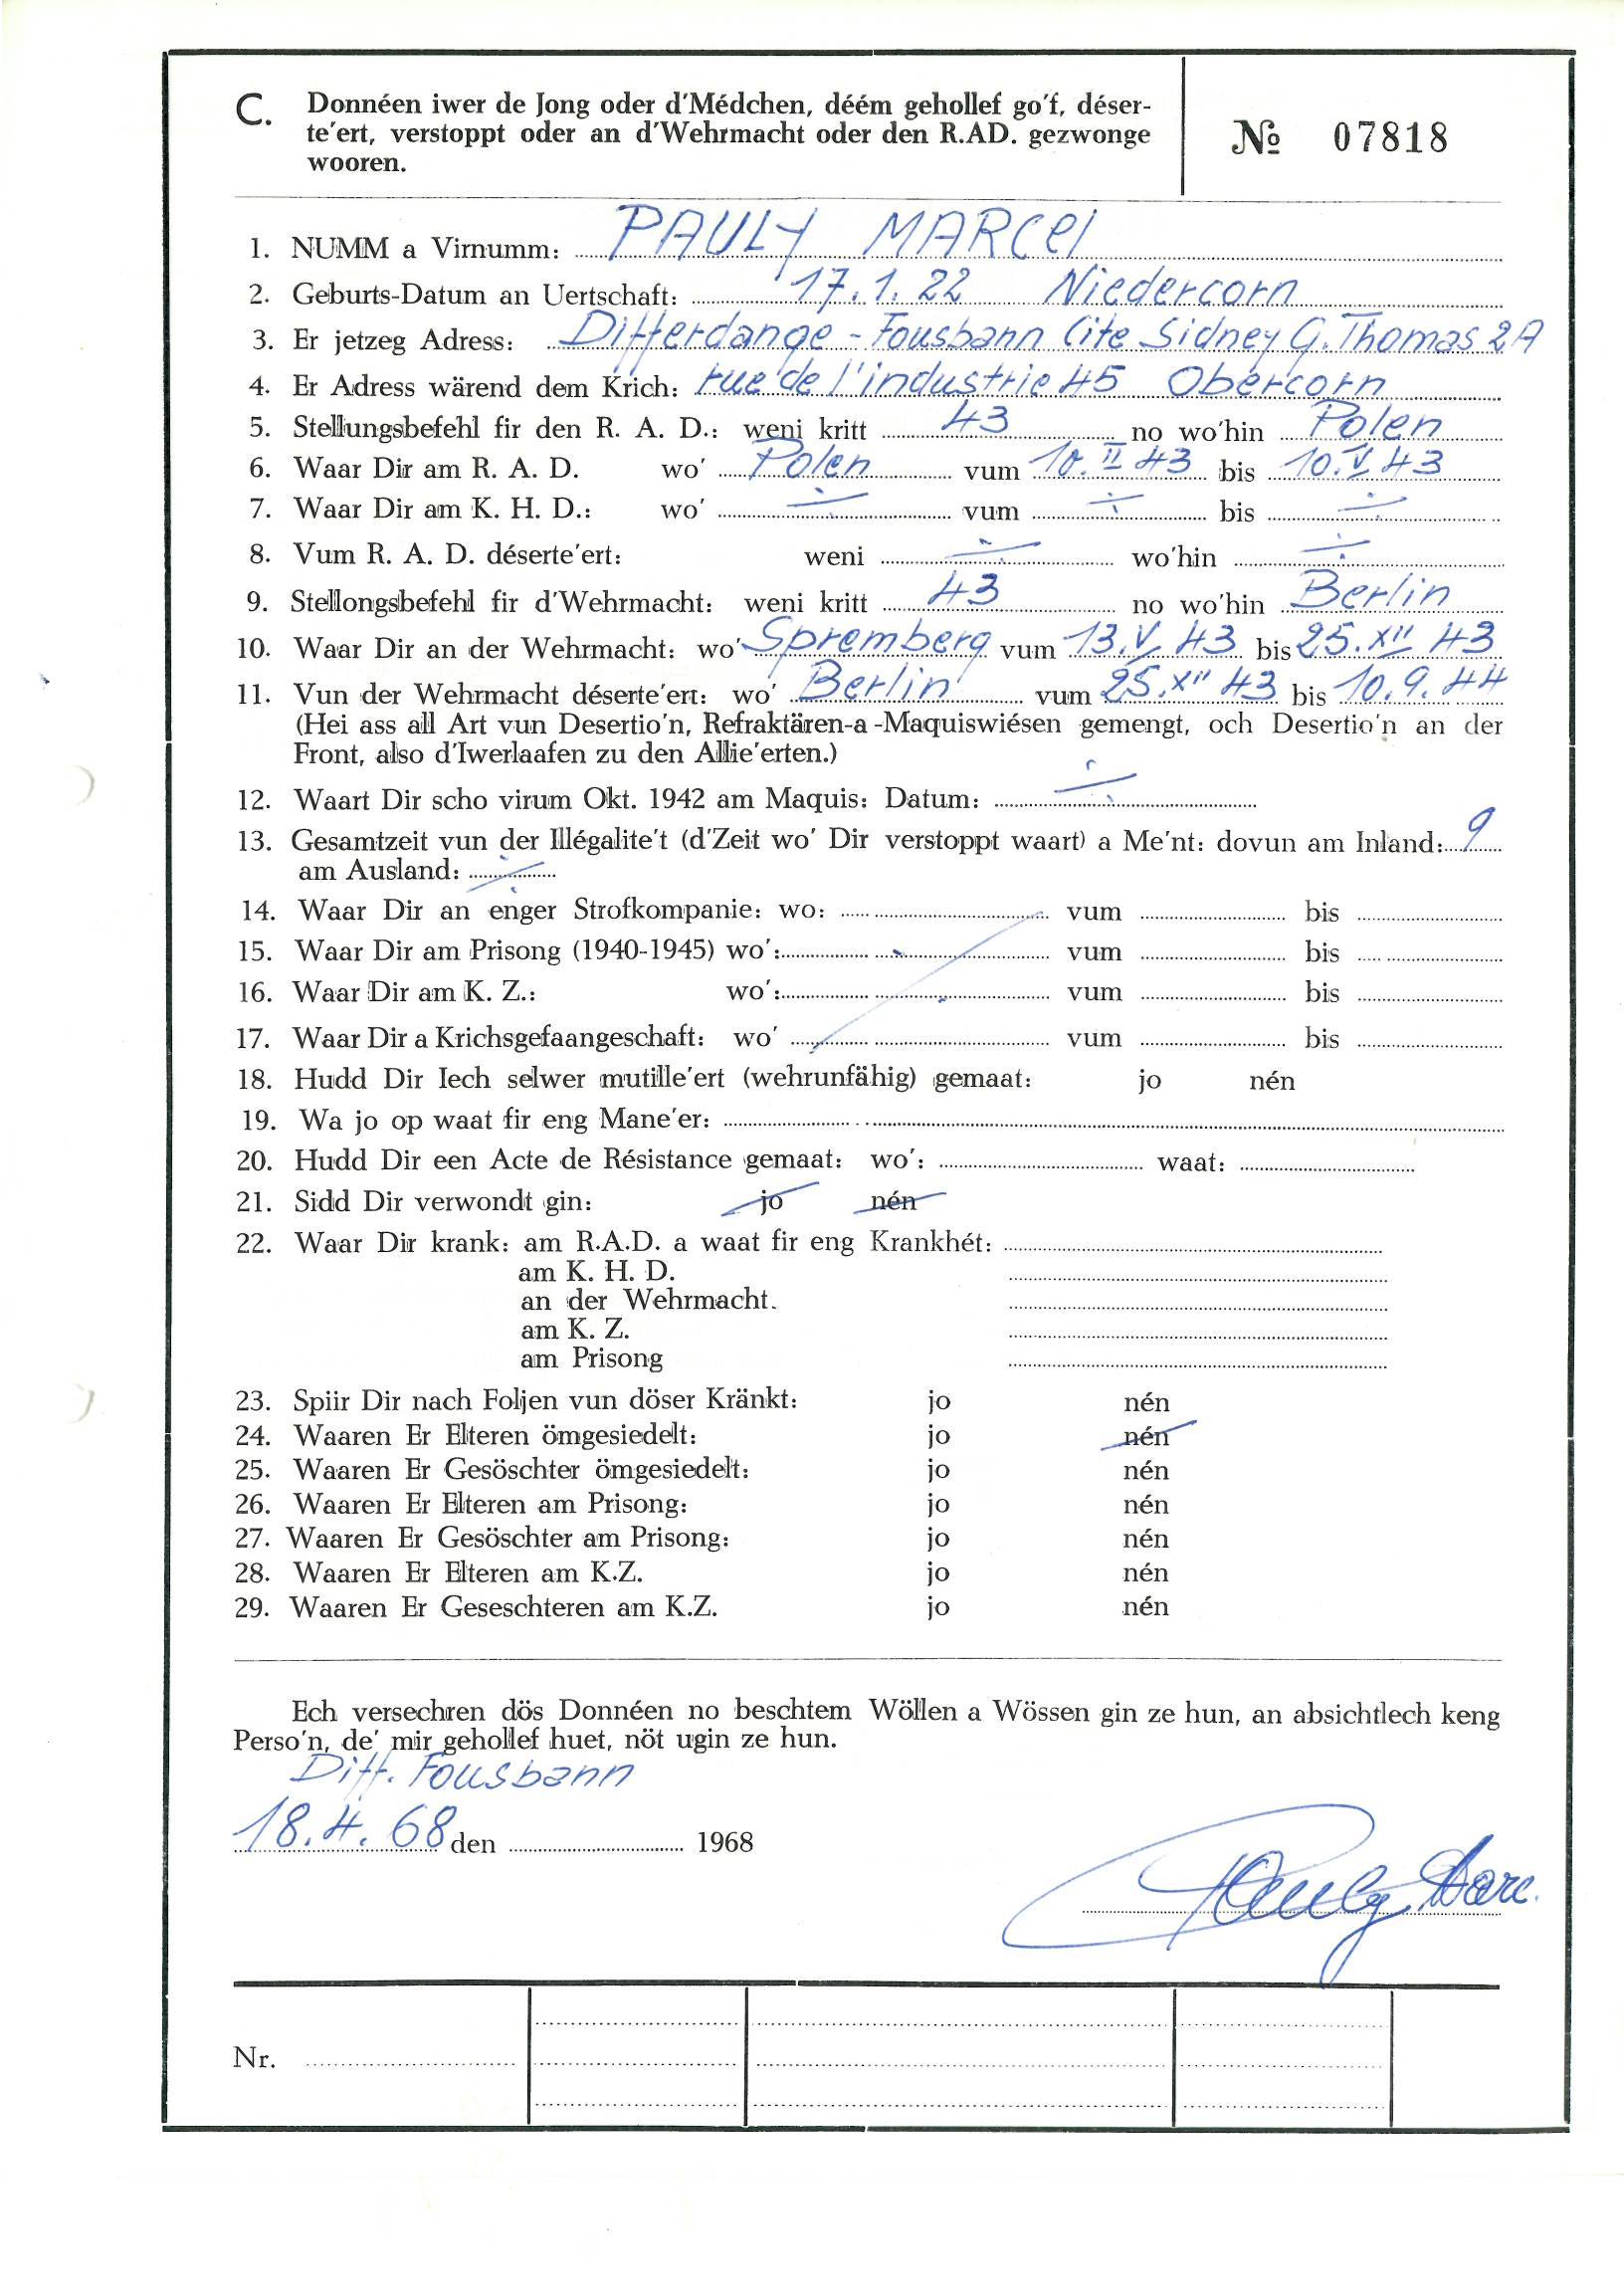 C. Donnéen iwer de Jong oder d'Médchen, déém gehollef go'f, déser-
te'ert, verstoppt oder an d'Wehrmacht oder den R.AD. gezwonge
wooren.
№ 07818
1. NUMM a Virnumm: PAULY MARCEl
2. Geburts-Datum an Uertschaft: 17.1.22 Niedercorn
3. Er jetzeg Adress: Differdange - Fousbann Cite Sidney G. Thomas 2A
4. Er Adress wärend dem Krich: rue de l'industrie 45 Obercorn
5. Stellungsbefehl fir den R. A. D.: weni kritt 43 no wo'hin Polen
6. Waar Dir am R. A. D. wo' Polen vum 10. II 43 bis 10. V 43
7. Waar Dir am K. H. D.: wo' ÷ vum ÷ bis ÷
8. Vum R. A. D. déserte'ert: weni ÷ wo'hin ÷
9. Stellongsbefehl fir d'Wehrmacht: weni kritt 43 no wo'hin Berlin
10. Waar Dir an der Wehrmacht: wo' Spremberg vum 13. V. 43 bis 25. XII 43
11. Vun der Wehrmacht déserte'ert: wo' Berlin vum 25. XII 43 bis 10.9.44
(Hei ass all Art vun Desertio'n, Refraktären-a-Maquiswiésen gemengt, och Desertio'n an der
Front, also d'Iwerlaafen zu den Allie'erten.)
12. Waart Dir scho virum Okt. 1942 am Maquis: Datum: ÷
13. Gesamtzeit vun der Illégalite't (d'Zeit wo' Dir verstoppt waart) a Me'nt: dovun am Inland: 9
am Ausland: ÷
14. Waar Dir an enger Strofkompanie: wo: vum bis
15. Waar Dir am Prisong (1940-1945) wo': vum bis
16. Waar Dir am K. Z.: wo': vum bis
17. Waar Dir a Krichsgefaangeschaft: wo' vum bis
18. Hudd Dir Iech selwer mutille'ert (wehrunfähig) gemaat: jo nén
19. Wa jo op waat fir eng Mane'er:
20. Hudd Dir een Acte de Résistance gemaat: wo': waat:
21. Sidd Dir verwondt gin: jo nén
22. Waar Dir krank: am R.A.D. a waat fir eng Krankhét:
am K. H. D.
an der Wehrmacht.
am K. Z.
am Prisong
23. Spiir Dir nach Foljen vun döser Kränkt: jo nén
24. Waaren Er Elteren ömgesiedelt: jo nén
25. Waaren Er Gesöschter ömgesiedelt: jo nén
26. Waaren Er Elteren am Prisong: jo nén
27. Waaren Er Gesöschter am Prisong: jo nén
28. Waaren Er Elteren am K.Z. jo nén
29. Waaren Er Geseschteren am K.Z. jo nén
Ech versechren dös Donnéen no beschtem Wöllen a Wössen gin ze hun, an absichtlech keng
Perso'n, de' mir gehollef huet, nöt ugin ze hun.
Diff. Fousbann
18.4.68 den 1968
Pauly Marc.
Nr.